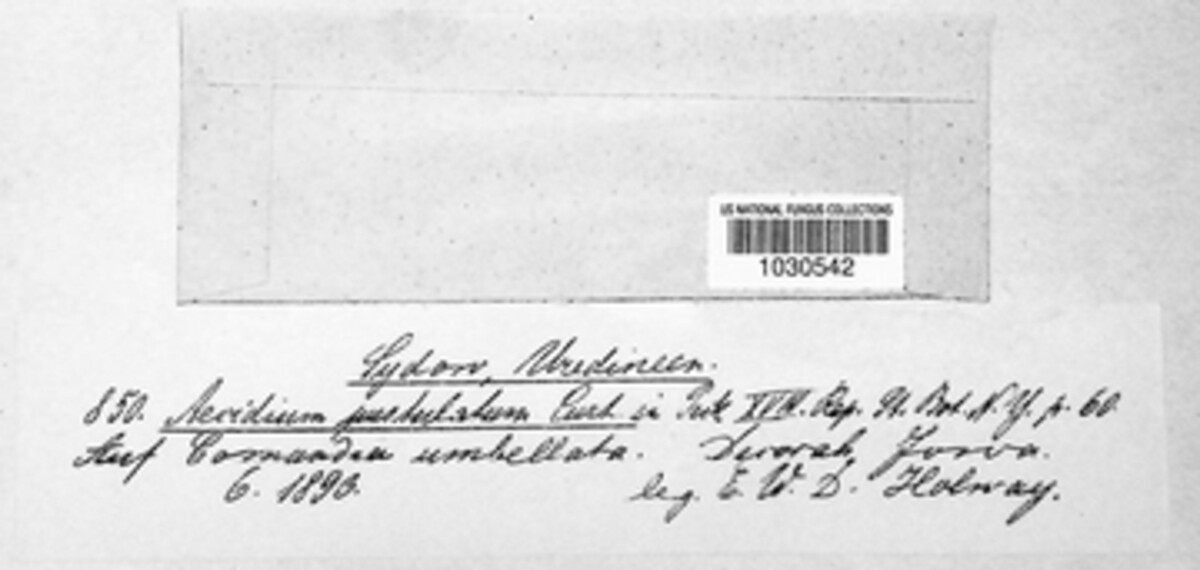 US NATIONAL FUNGUS COLLECTIONS
1030542
Sydow, Uredineen.
850. Aecidium pustulatum Curt. in Peck XXIII. Rep. St. Bot. N. Y. p. 60.
Auf Comandra umbellata. Decorah, Jowa.
6. 1893. leg. E. W. D. Holway.